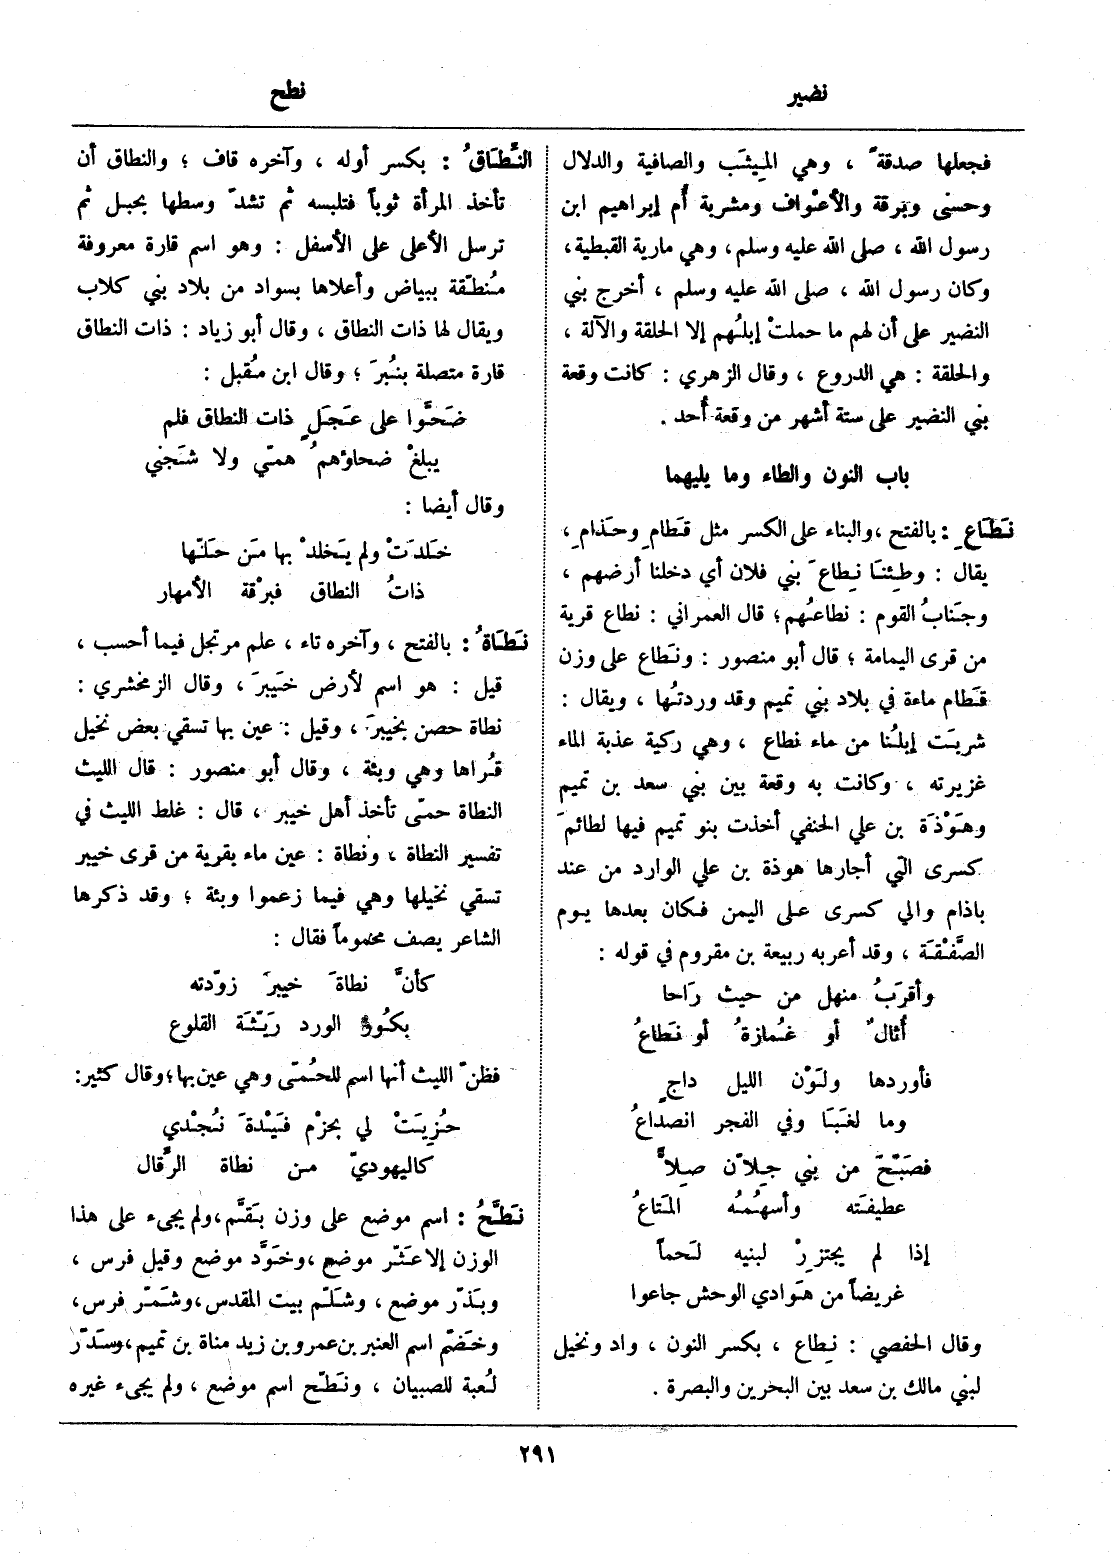 نضير
نطح
فجعلها صدقةً ، وهي المِيثَب والصافية والدلال
وحسنى وبرقة والأعْواف ومشربة أُم إبراهيم ابن
رسول الله ، صلى الله عليه وسلم، وهي مارية القبطية،
وكان رسول الله ، صلى الله عليه وسلم ، أخرج بني
النضير على أن لهم ما حملتْ إبلُهم إلا الحلقة والآلة ،
والحلقة : هي الدروع ، وقال الزهري : كانت وقعة
بني النضير على ستة أشهر من وقعة أُحد .
باب النون والطاء وما يليهما
نَطَاعِ : بالفتح ، والبناء على الكسر مثل قَطامِ وحَذامِ ،
يقال : وطِئنَا نِطاعَ بني فلان أي دخلنا أرضهم ،
وجَنابُ القوم : نطاعُهم ؛ قال العمراني : نطاع قرية
من قرى اليمامة ؛ قال أبو منصور : ونَطاع على وزن
قَطام ماءة في بلاد بني تميم وقد وردتُها ، ويقال :
شربَت إبلُنا من ماء نطاع ، وهي ركية عذبة الماء
غزيرته ، وكانت به وقعة بين بني سعد بن تميم
وهَوْذَة بن علي الحنفي أخذت بنو تميم فيها لطائمَ
كسرى التي أجارها هوذة بن علي الوارد من عند
باذام والي كسرى على اليمن فكان بعدها يوم
الصَّفْقَة ، وقد أعربه ربيعة بن مقروم في قوله :
وأقرَبُ منهل من حيث رَاحا
أُثالٌ أو غُمازةُ أو نَطاعُ
فأوردها ولَوْن الليل داجٍ
وما لغَبَا وفي الفجر انصداعُ
فصَبّحَ من بني جِلاّن صِلاًّ
عطيفَته وأسهُمُه المَتاعُ
إذا لم يجتزِرْ لبنيه لَحماً
غريضاً من هَوادي الوحش جاعوا
وقال الحفصي : نِطاع ، بكسر النون ، واد ونخيل
لبني مالك بن سعد بين البحرين والبصرة .
النِّطَاقُ : بكسر أوله ، وآخره قاف ؛ والنطاق أن
تأخذ المرأة ثوباً فتلبسه ثم تشدّ وسطها بحبل ثم
ترسل الأعلى على الأسفل : وهو اسم قارة معروفة
مُنطّقة ببياض وأعلاها بسواد من بلاد بني كلاب
ويقال لها ذات النطاق ، وقال أبو زياد : ذات النطاق
قارة متصلة بنُبرَ ؛ وقال ابن مُقبل :
ضَحَّوا على عَجَلٍ ذات النطاق فلم
يبلغْ ضحاؤهمُ همّي ولا شَجَني
وقال أيضا :
خَلَدَتْ ولم يَخلدْ بها مَن حَلّها
ذاتُ النطاق فبرْقة الأمهار
نَطَاةُ : بالفتح ، وآخره تاء ، علم مرتجل فيما أحسب ،
قيل : هو اسم لأرض خَيبرَ ، وقال الزمخشري :
نطاة حصن بخيبرَ ، وقيل : عين بها تسقي بعض نخيل
قُراها وهي وبئة ، وقال أبو منصور : قال الليث
النطاة حمّى تأخذ أهل خيبر ، قال : غلط الليث في
تفسير النطاة ، ونطاة : عين ماء بقرية من قرى خيبر
تسقي نخيلها وهي فيما زعموا وبئة ؛ وقد ذكرها
الشاعر يصف محموماً فقال :
كأنّ نطاةَ خيبرَ زوّدته
بكُور الورد رَيّثَة القلوع
فظنّ الليث أنها اسم للحُمّى وهي عين بها؛ وقال كثير:
حُزِيَتْ لي بحَزْم فَيْدةَ تُحْدي
كاليهوديّ من نطاة الرّقال
نَطَّحُ : اسم موضع على وزن بَقّم، ولم يجىء على هذا
الوزن إلا عَثّر موضع ، وخَوَّد موضع وقيل فرس ،
وبَذّر موضع ، وشَلّم بيت المقدس، وشَمّر فرس،
وخَضّم اسم العنبر بن عمرو بن زيد مناة بن تميم، وسَدّر
لُعبة للصبيان ، ونَطّح اسم موضع ، ولم يجىء غيره
٢٩١